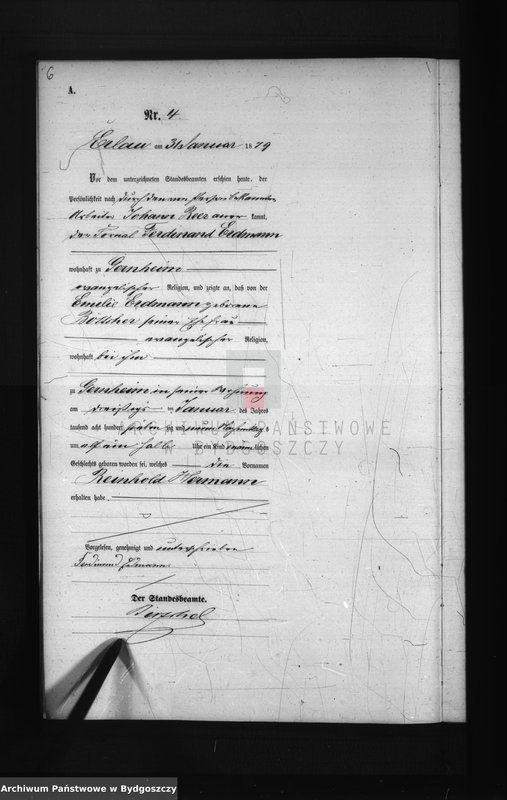 6
A.
Nr. 4
Erlau am 31 Januar 1879
Vor dem unterzeichneten Standesbeamten erschien heute, der
Persönlichkeit nach durch den von Person bekannten
Arbeiter Johann aner kannt,
der Fornal Ferdinand Erdmann
wohnhaft zu Gernheim
evangelischer Religion, und zeigte an, daß von der
Emelie Erdmann geborene
Böttcher seiner Ehefrau
evangelischer Religion,
wohnhaft bei ihm
zu Gernheim in seiner Wohnung
am dreißigs ten Januar des Jahres
tausend acht hundert zig und neun Nachmittags
um elf ein halb Uhr ein Kind männlichen
Geschlechts geboren worden sei, welches die Vornamen
Reinhold Hermann
erhalten habe.
Vorgelesen, genehmigt und unterschrieben
Ferdinand Erdmann
Der Standesbeamte.
ARCHIWUM PAŃSTWOWE
W BYDGOSZCZY
Archiwum Państwowe w Bydgoszczy